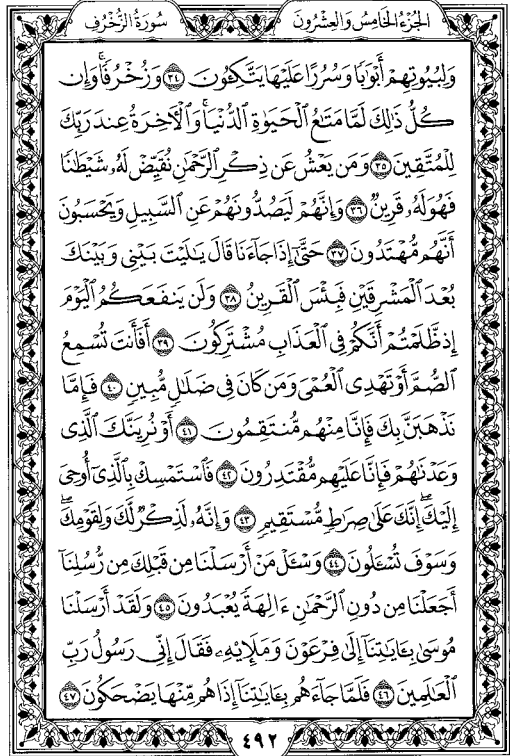 سُورَةُ الزُّخْرُفِ
الجُزْءُ الخَامِسُ وَالعِشْرُونَ
وَلِبُيُوتِهِمْ أَبْوَٰبًا وَسُرُرًا عَلَيْهَا يَتَّكِـُٔونَ ٣٤ وَزُخْرُفًا ۚ وَإِن
كُلُّ ذَٰلِكَ لَمَّا مَتَٰعُ ٱلْحَيَوٰةِ ٱلدُّنْيَا ۚ وَٱلْـَٔاخِرَةُ عِندَ رَبِّكَ
لِلْمُتَّقِينَ ٣٥ وَمَن يَعْشُ عَن ذِكْرِ ٱلرَّحْمَٰنِ نُقَيِّضْ لَهُۥ شَيْطَٰنًا
فَهُوَ لَهُۥ قَرِينٌ ٣٦ وَإِنَّهُمْ لَيَصُدُّونَهُمْ عَنِ ٱلسَّبِيلِ وَيَحْسَبُونَ
أَنَّهُم مُّهْتَدُونَ ٣٧ حَتَّىٰٓ إِذَا جَآءَنَا قَالَ يَٰلَيْتَ بَيْنِى وَبَيْنَكَ
بُعْدَ ٱلْمَشْرِقَيْنِ فَبِئْسَ ٱلْقَرِينُ ٣٨ وَلَن يَنفَعَكُمُ ٱلْيَوْمَ
إِذ ظَّلَمْتُمْ أَنَّكُمْ فِى ٱلْعَذَابِ مُشْتَرِكُونَ ٣٩ أَفَأَنتَ تُسْمِعُ
ٱلصُّمَّ أَوْ تَهْدِى ٱلْعُمْىَ وَمَن كَانَ فِى ضَلَٰلٍ مُّبِينٍ ٤٠ فَإِمَّا
نَذْهَبَنَّ بِكَ فَإِنَّا مِنْهُم مُّنتَقِمُونَ ٤١ أَوْ نُرِيَنَّكَ ٱلَّذِى
وَعَدْنَٰهُمْ فَإِنَّا عَلَيْهِم مُّقْتَدِرُونَ ٤٢ فَٱسْتَمْسِكْ بِٱلَّذِىٓ أُوحِىَ
إِلَيْكَ ۖ إِنَّكَ عَلَىٰ صِرَٰطٍ مُّسْتَقِيمٍ ٤٣ وَإِنَّهُۥ لَذِكْرٌ لَّكَ وَلِقَوْمِكَ ۖ
وَسَوْفَ تُسْـَٔلُونَ ٤٤ وَسْـَٔلْ مَنْ أَرْسَلْنَا مِن قَبْلِكَ مِن رُّسُلِنَآ
أَجَعَلْنَا مِن دُونِ ٱلرَّحْمَٰنِ ءَالِهَةً يُعْبَدُونَ ٤٥ وَلَقَدْ أَرْسَلْنَا
مُوسَىٰ بِـَٔايَٰتِنَآ إِلَىٰ فِرْعَوْنَ وَمَلَإِيْهِۦ فَقَالَ إِنِّى رَسُولُ رَبِّ
ٱلْعَٰلَمِينَ ٤٦ فَلَمَّا جَآءَهُم بِـَٔايَٰتِنَآ إِذَا هُم مِّنْهَا يَضْحَكُونَ ٤٧
٤٩٢